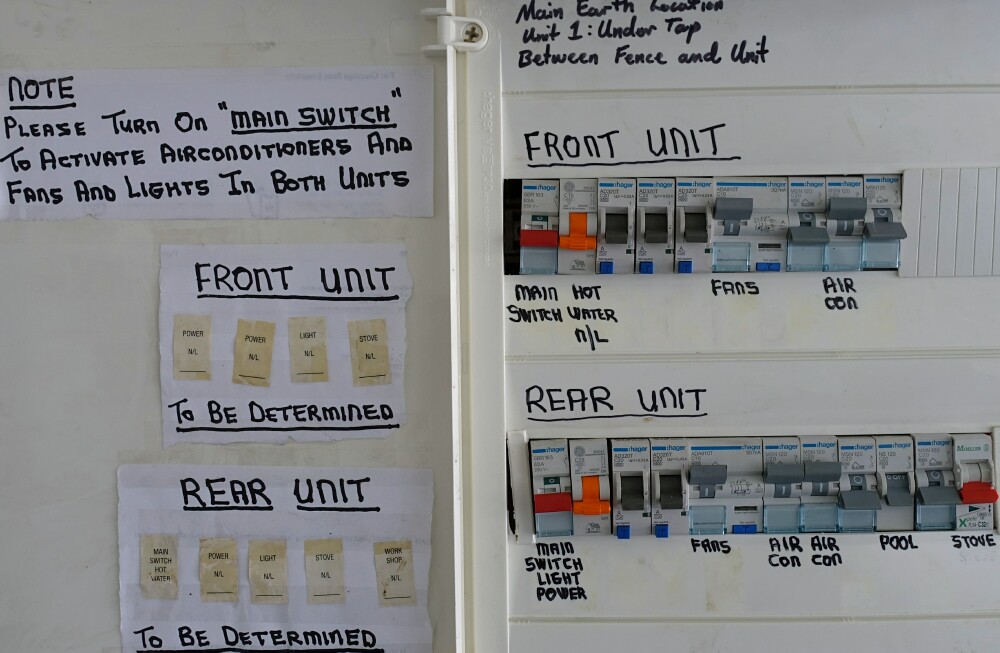 NOTE
PLEASE TURN ON "MAIN SWITCH"
TO ACTIVATE AIRCONDITIONERS AND
FANS AND LIGHTS IN BOTH UNITS
FRONT UNIT
POWER N/L
POWER N/L
LIGHT N/L
STOVE N/L
TO BE DETERMINED
REAR UNIT
MAIN SWITCH HOT WATER
POWER N/L
LIGHT N/L
STOVE N/L
WORK SHOP N/L
TO BE DETERMINED
Main Earth Location
Unit 1: Under Tap
Between Fence and Unit
FRONT UNIT
:hager
:hager
:hager
:hager
:hager
:hager
:hager
:hager
MAIN SWITCH
HOT WATER N/L
FANS
AIR CON
REAR UNIT
:hager
:hager
:hager
:hager
:hager
:hager
:hager
:hager
:hager
MAIN SWITCH LIGHT POWER
FANS
AIR CON
AIR CON
POOL
STOVE